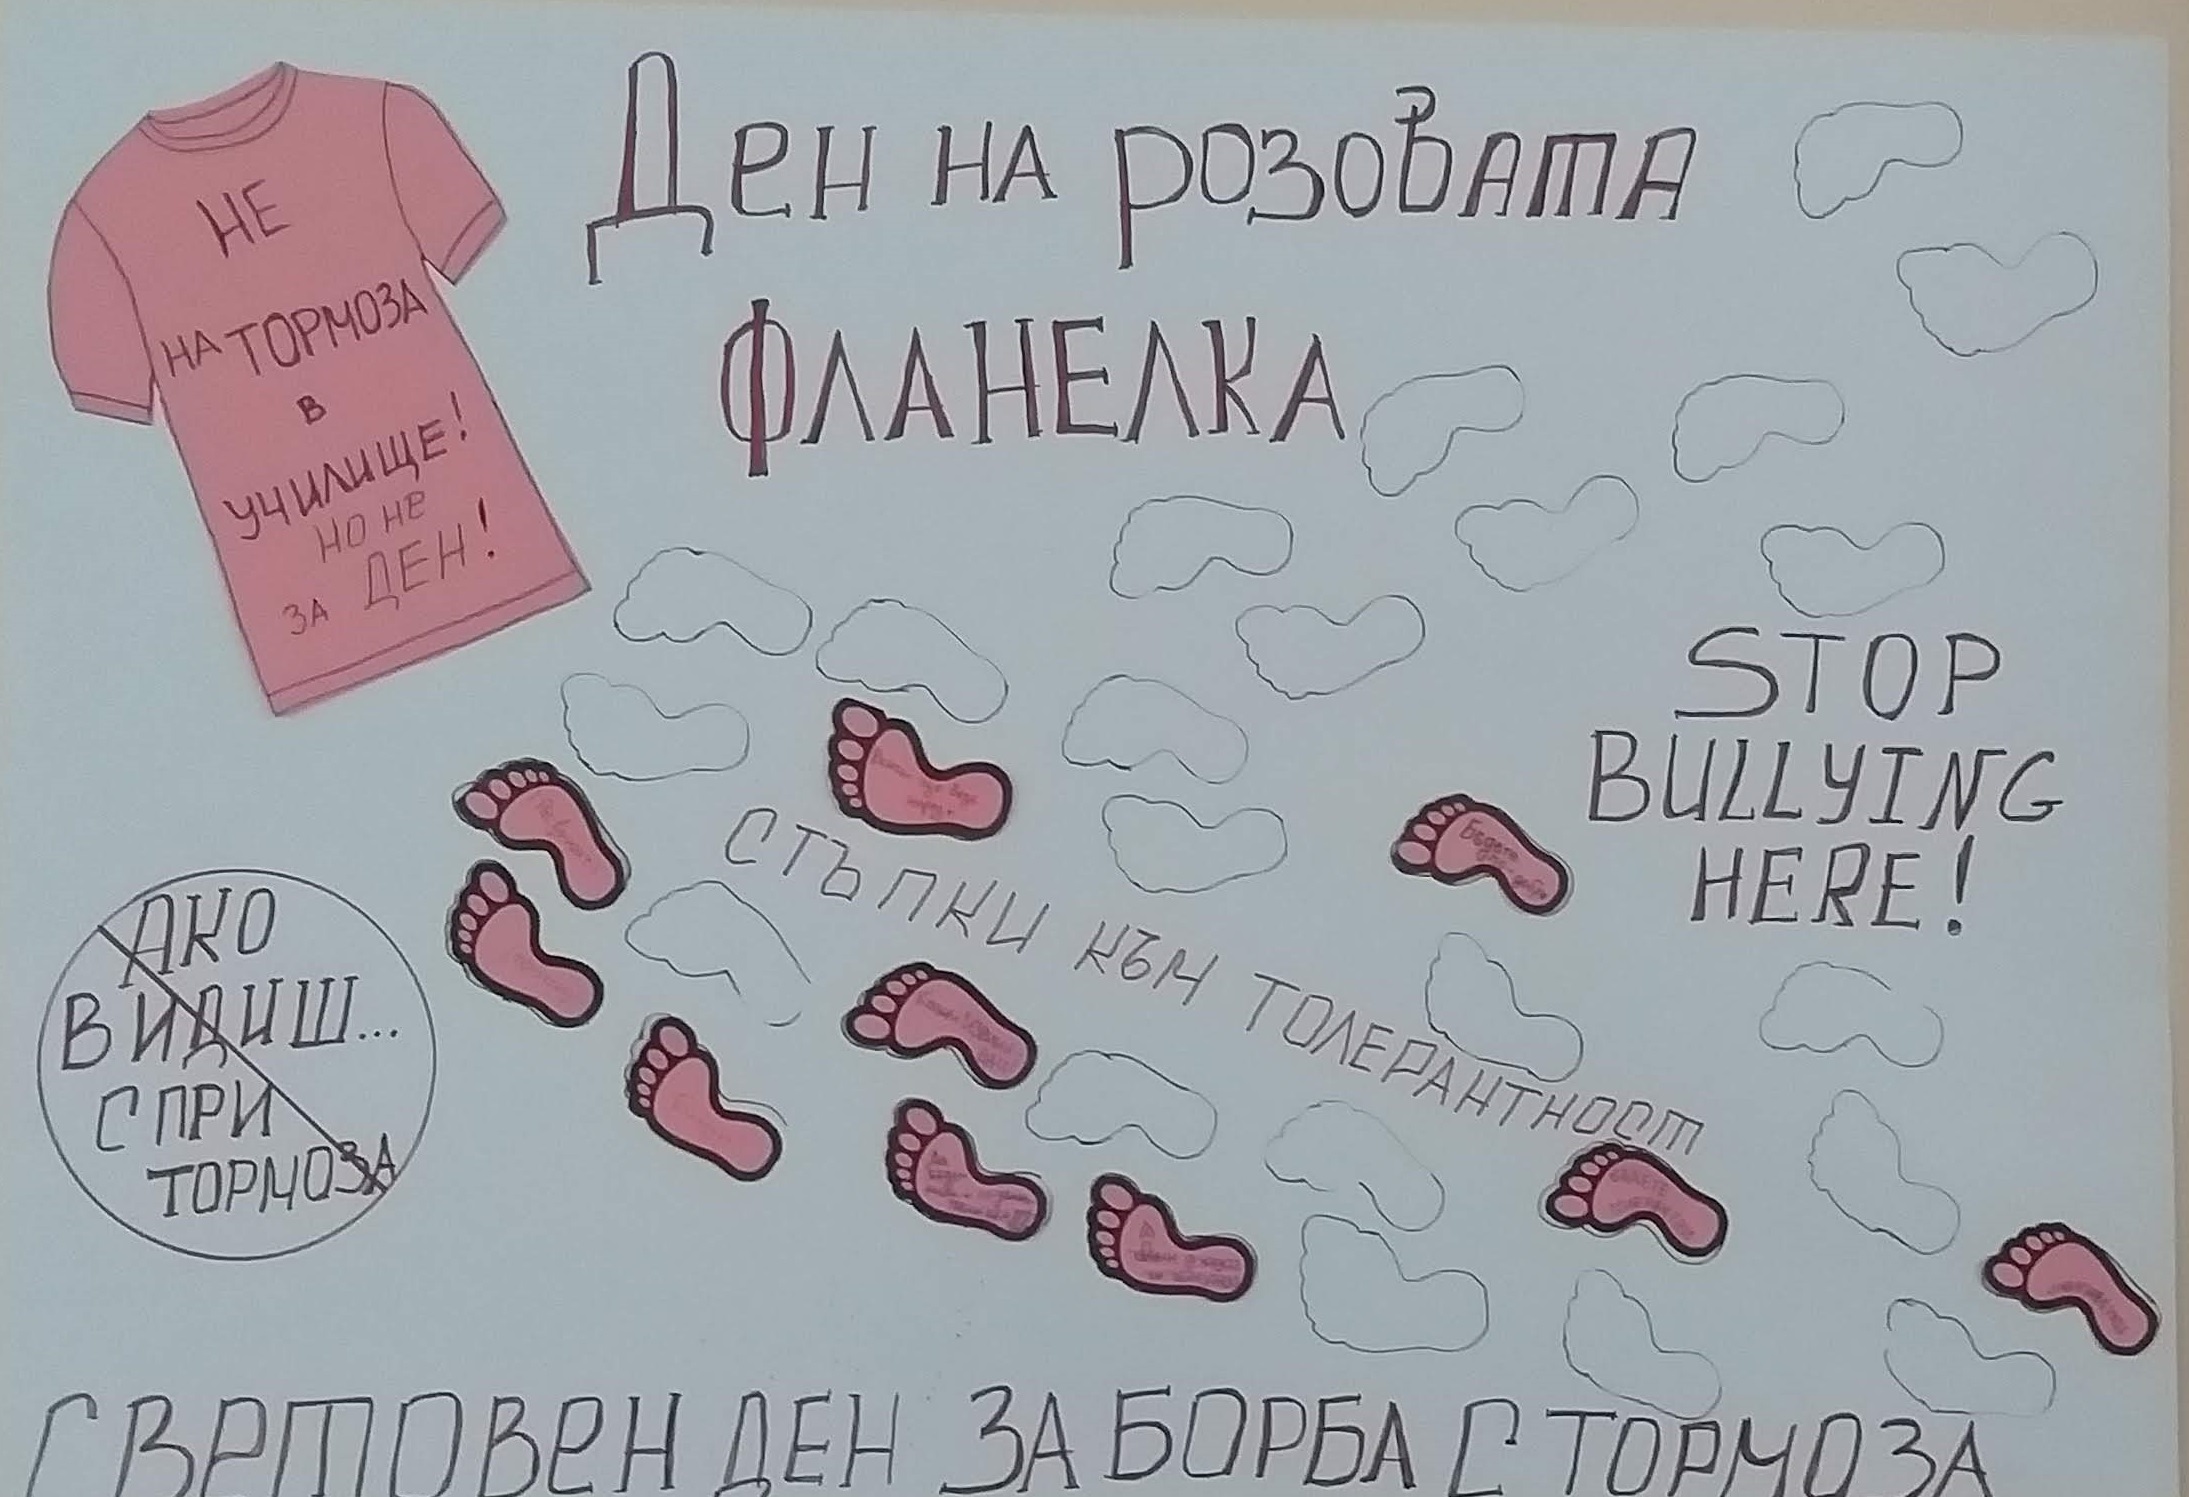 Ден на розовата
фланелка
НЕ
НА ТОРМОЗА
В
УЧИЛИЩЕ!
НО НЕ
ЗА ДЕН!
STOP
BULLYING
HERE!
СТЪПКИ КЪМ ТОЛЕРАНТНОСТ
Бъдете
АКО
ВИДИШ...
СПРИ
ТОРМОЗА
СВЕТОВЕН ДЕН ЗА БОРБА С ТОРМОЗА